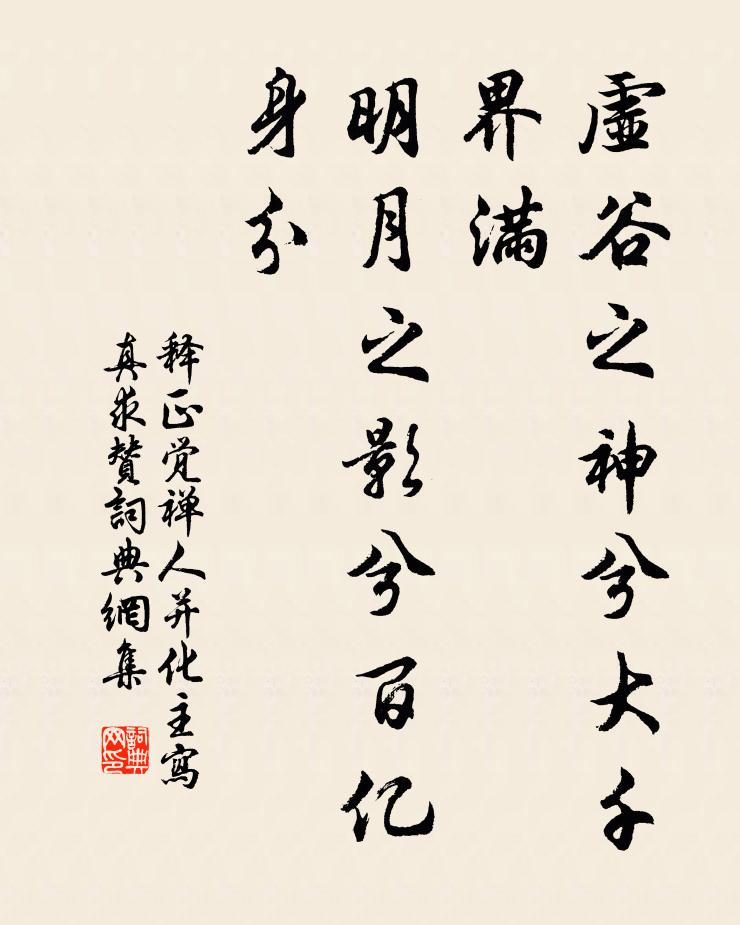 虛谷之神兮大千
界滿
明月之影兮百亿
身分
释正觉禅人并化主寫
真求贊詞典網集
詞典
网印